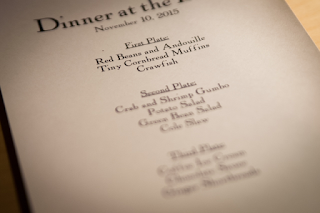 Dinner at the
November 10, 2015
First Plate:
Red Beans and Andouille
Tiny Cornbread Muffins
Crawfish
Second Plate:
Crab and Shrimp Gumbo
Potato Salad
Green Bean Salad
Cole Slaw
Third Plate: